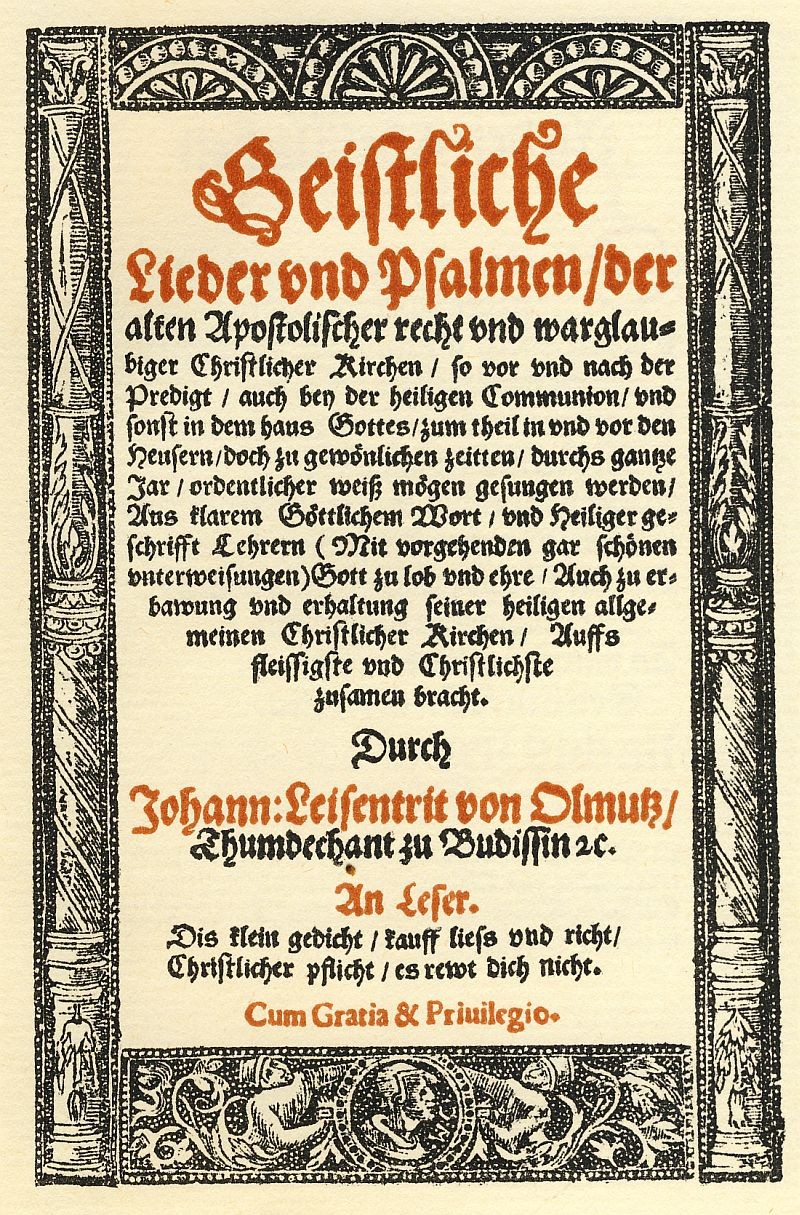 Geistliche
Lieder vnd Psalmen/der
alten Apostolischer recht vnd warglau-
biger Christlicher Kirchen / so vor vnd nach der
Predigt / auch bey der heiligen Communion/ vnd
sonst in dem haus Gottes/zum theil in vnd vor den
Heusern/doch zu gewönlichen zeitten/ durchs gantze
Jar / ordentlicher weiß mögen gesungen werden/
Aus klarem Göttlichem Wort / vnd Heiliger ge-
schrifft Lehrern ( Mit vorgehenden gar schönen
vnterweisungen)Gott zu lob vnd ehre / Auch zu er-
bawung vnd erhaltung seiner heiligen allge-
meinen Christlicher Kirchen / Auffs
fleissigste vnd Christlichste
zusamen bracht.
Durch
Johann:Leisentrit von Olmutz/
Thumdechant zu Budissin ꝛc.
An Leser.
Dis klein gedicht / kauff liess vnd richt/
Christlicher pflicht / es rewt dich nicht.
Cum Gratia & Priuilegio.